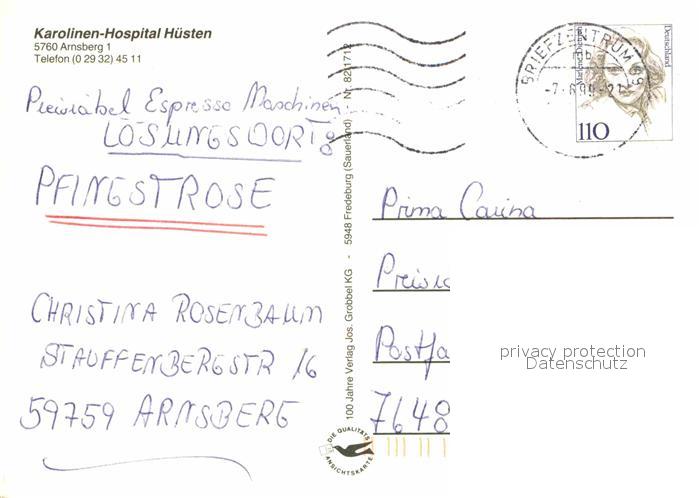 Karolinen-Hospital Hüsten
5760 Arnsberg 1
Telefon (0 29 32) 45 11
Preisrätsel Espresso Maschinen
LÖSUNGSWORT:
PFINGSTROSE
CHRISTINA ROSENBAUM
STAUFFENBERGSTR 16
59759 ARNSBERG
100 Jahre Verlag Jos. Grobbel KG - 5948 Fredeburg (Sauerland) Nr. 82/1712
DIE QUALITÄTS
ANSICHTSKARTE
BRIEFZENTRUM 59
mb
Deutschland
110
Prima Carina
Preisrä
Postfa
7648
privacy protection
Datenschutz